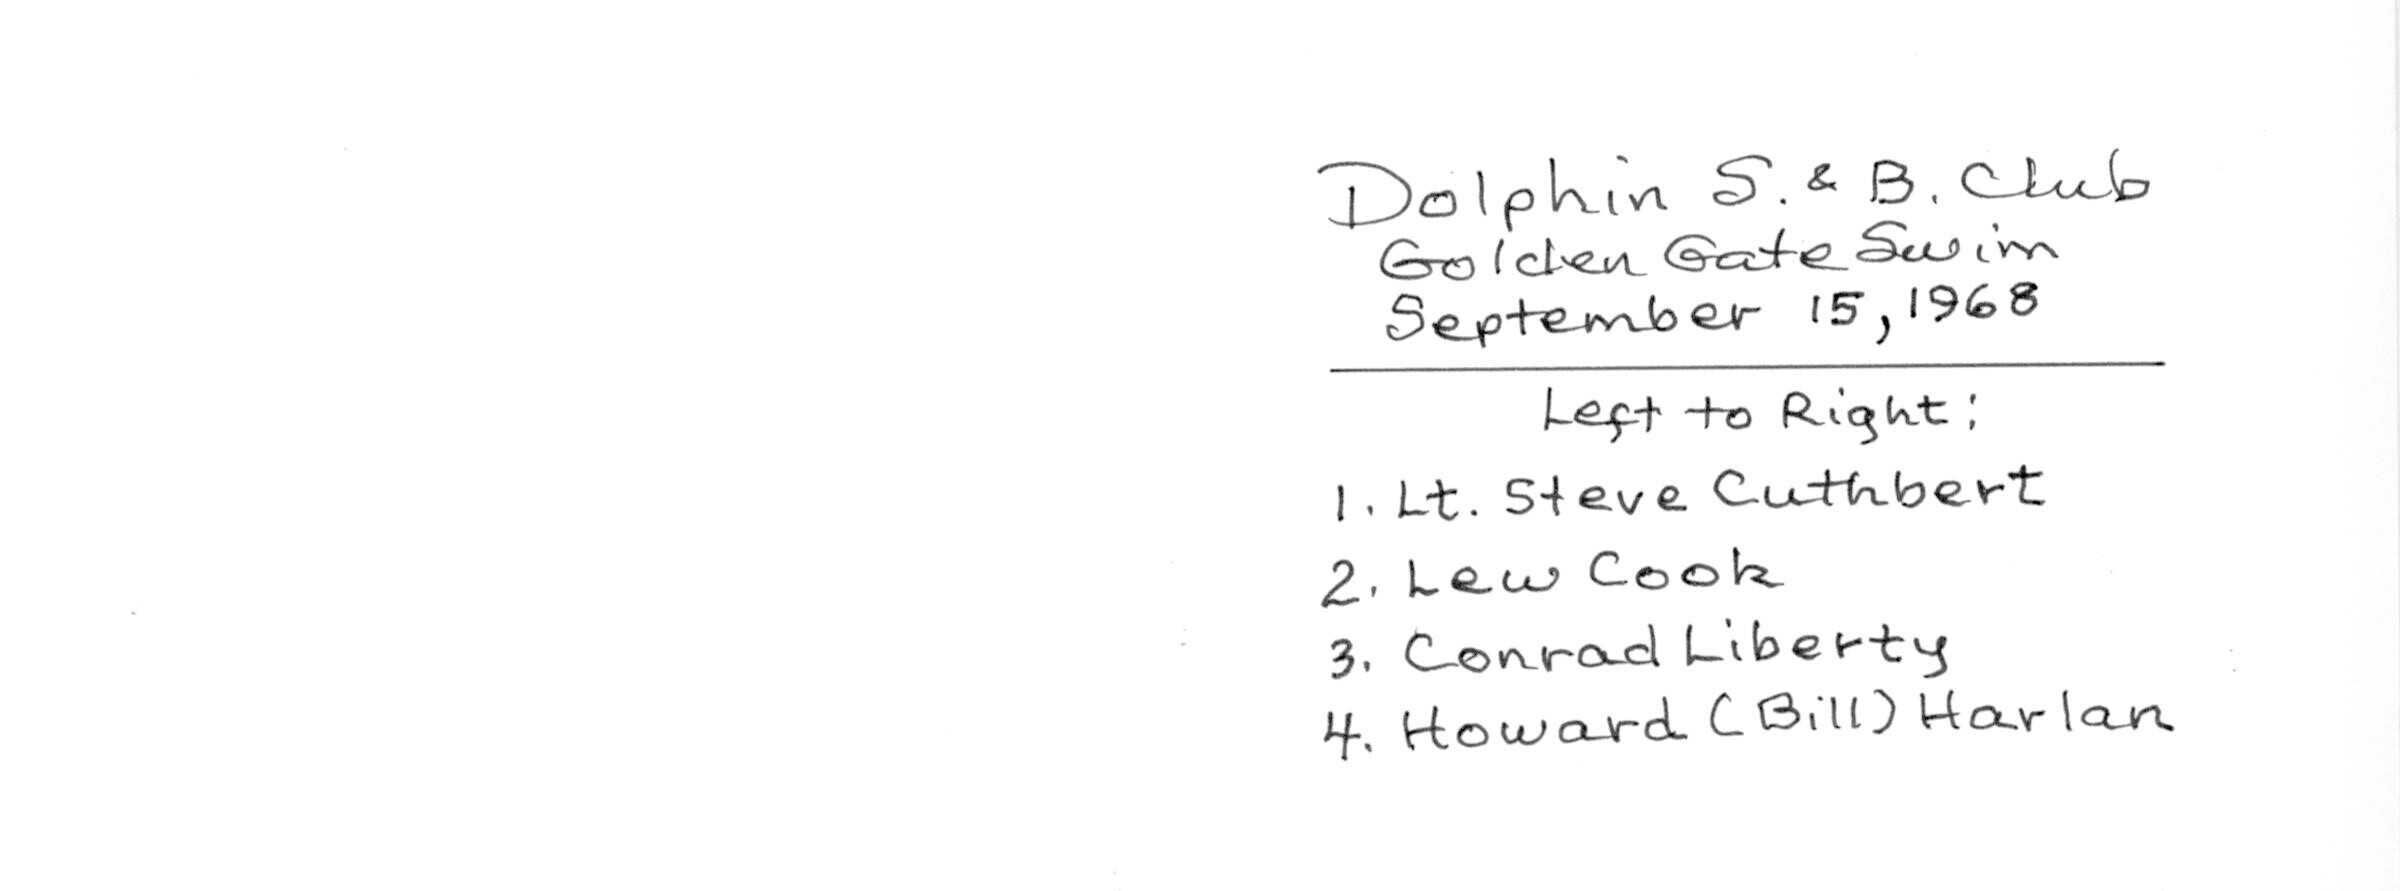 Dolphin S. & B. Club
Golden Gate Swim
September 15, 1968
Left to Right:
1. Lt. Steve Cuthbert
2. Lew Cook
3. Conrad Liberty
4. Howard (Bill) Harlan